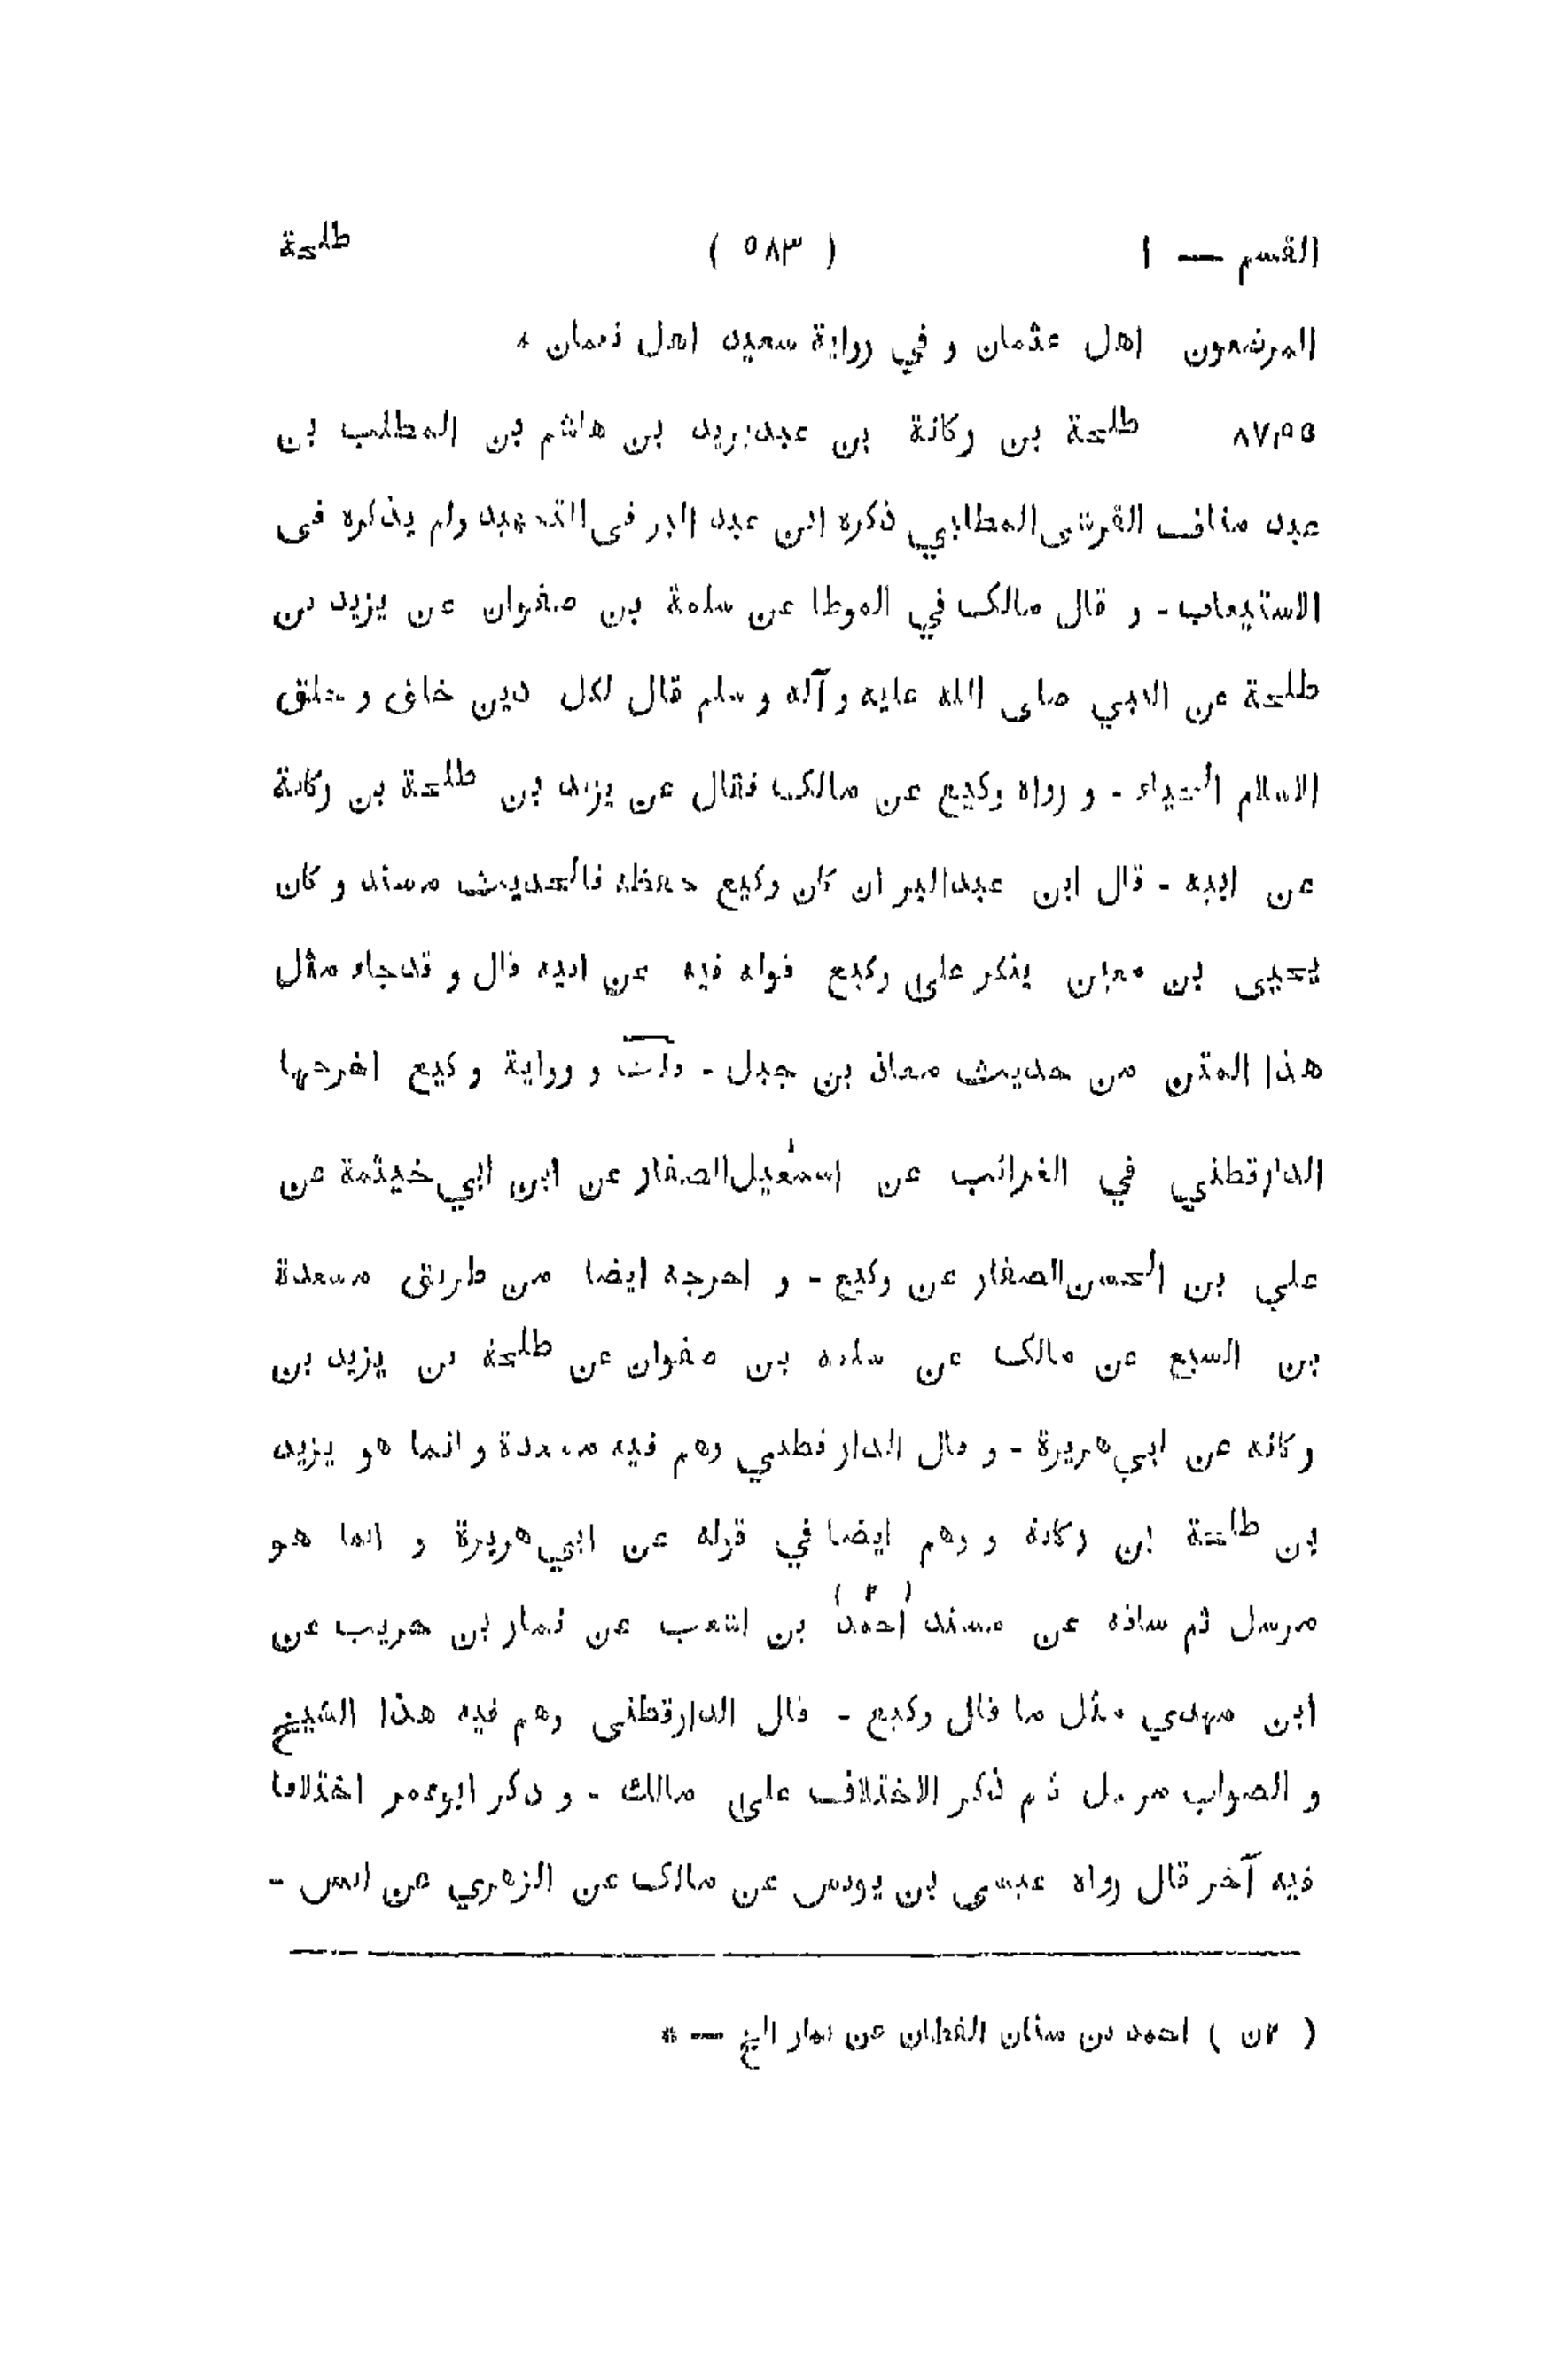 القسم — ١ ( ٥٨٣ ) طلحة
المرضعون اهل عثمان و في رواية سعيد اهل نعمان *
طلحة بن ركانة بن عبديزيد بن هاشم بن المطلب بن
عبد مناف القرشى المطلبي ذكره ابن عبد البر فى التمهيد ولم يذكره فى
الاستيعاب - و قال مالك في الموطا عن سلمة بن صفوان عن يزيد بن
طلحة عن النبي صلى الله عليه و آله و سلم قال لكل دين خلق و خلق
الاسلام الحياء - و رواه وكيع عن مالك فقال عن يزيد بن طلحة بن ركانة
عن ابيه - قال ابن عبدالبر ان كان وكيع حفظه فالحديث مسند و كان
يحيى بن معين ينكر على وكيع قوله فيه عن ابيه قال و قد جاء مثل
هذا المتن من حديث معاذ بن جبل - قلت و رواية وكيع اخرجها
الدارقطني في الغرائب عن اسمٰعيل الصفار عن ابن ابي خيثمة عن
علي بن الحسن الصفار عن وكيع - و اخرجه ايضا من طريق مسعدة
بن السبع عن مالك عن سلمه بن صفوان عن طلحة بن يزيد بن
ركانه عن ابي هريرة - و قال الدارقطني وهم فيه مسعدة و انما هو يزيد
بن طلحة بن ركانة و وهم ايضا في قوله عن ابي هريرة و انما هو
مرسل ثم ساقه عن مسند احمد ( ٢ ) بن عن بن عن
ابن مهدي مثل ما قال وكيع - قال الدارقطنى وهم فيه هذا الشيخ
و الصواب مرسل ثم ذكر الاختلاف على مالك - و ذكر ابوعمر اختلافا
فيه آخر قال رواه عيسى بن يونس عن مالك عن الزهري عن انس -
( ٢ن ) احمد بن سنان القطان عن الخ — *